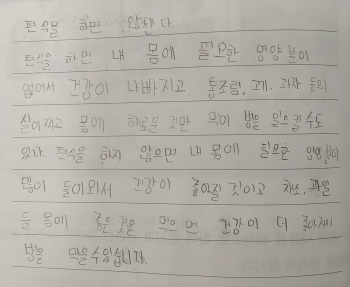 편식을 하면 안된다.
편식을 하면 내 몸에 필요한 영양분이
없어서 건강이 나빠지고 통조림, 고기, 과자 등의
살이 찌고 몸에 해로운 것만 먹어 병을 일으킬 수도
있다. 편식을 하지 않으면 내 몸에 필요한 영양분이
많이 들어와서 건강이 좋아질 것이고 채소, 과일
등 몸에 좋은 것을 먹으면 건강이 더 좋아져서
병을 막을 수 있습니다.